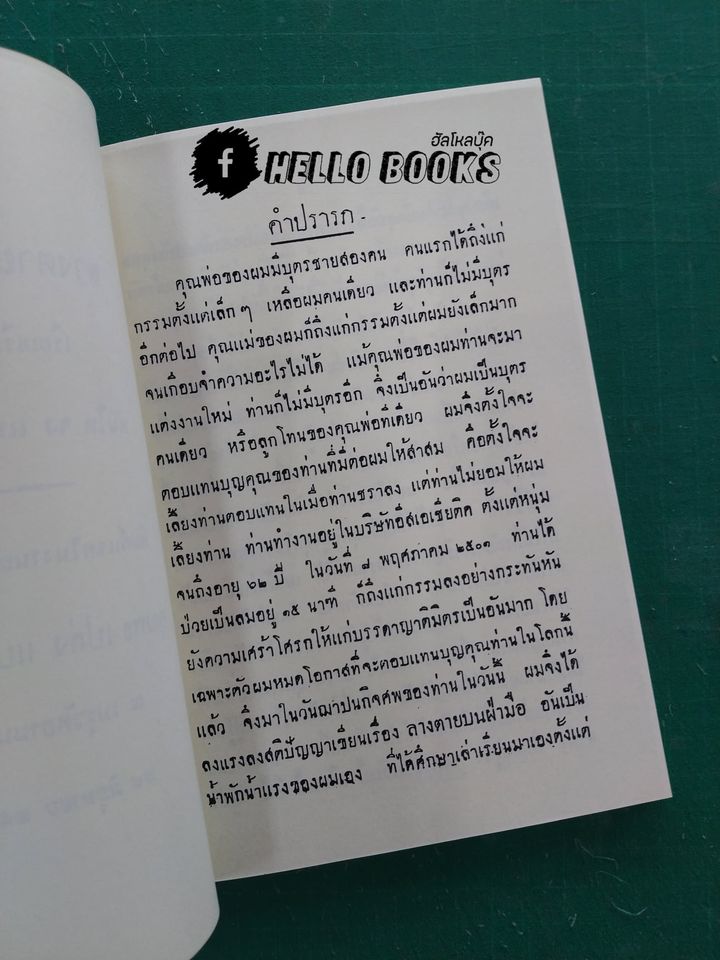 ฮัลโหลบุ๊ค
f HELLO BOOKS
คำปรารภ -
คุณพ่อของผมมีบุตรชายสองคน คนแรกได้ถึงแก่
กรรมตั้งแต่เล็กๆ เหลือผมคนเดียว และท่านก็ไม่มีบุตร
อีกต่อไป คุณแม่ของผมก็ถึงแก่กรรมตั้งแต่ผมยังเล็กมาก
จนเกือบจำความอะไรไม่ได้ แม้คุณพ่อของผมท่านจะมา
แต่งงานใหม่ ท่านก็ไม่มีบุตรอีก จึงเป็นอันว่าผมเป็นบุตร
คนเดียว หรือลูกโทนของคุณพ่อที่เดียว ผมจึงตั้งใจจะ
ตอบแทนบุญคุณของท่านที่มีต่อผมให้สาสม คือตั้งใจจะ
เลี้ยงท่านตอบแทนในเมื่อท่านชราลง แต่ท่านไม่ยอมให้ผม
เลี้ยงท่าน ท่านทำงานอยู่ในบริษัทอีสเอเชียติค ตั้งแต่หนุ่ม
จนถึงอายุ ๖๒ ปี ในวันที่ ๗ พฤศภาคม ๒๕๐๑ ท่านได้
ป่วยเป็นลมอยู่ ๑๕ นาที ก็ถึงแก่กรรมลงอย่างกระทันหัน
ยังความเศร้าโศรกให้แก่บรรดาญาติมิตรเป็นอันมาก โดย
เฉพาะตัวผมหมดโอกาสที่จะตอบแทนบุญคุณท่านในโลกนี้
แล้ว จึงมาในวันฌาปนกิจศพของท่านในวันนี้ ผมจึงได้
ลงแรงลงสติปัญญาเขียนเรื่อง ลางตายบนฝ่ามือ อันเป็น
น้ำพักน้ำแรงของผมเอง ที่ได้ศึกษาเล่าเรียนมาเองตั้งแต่